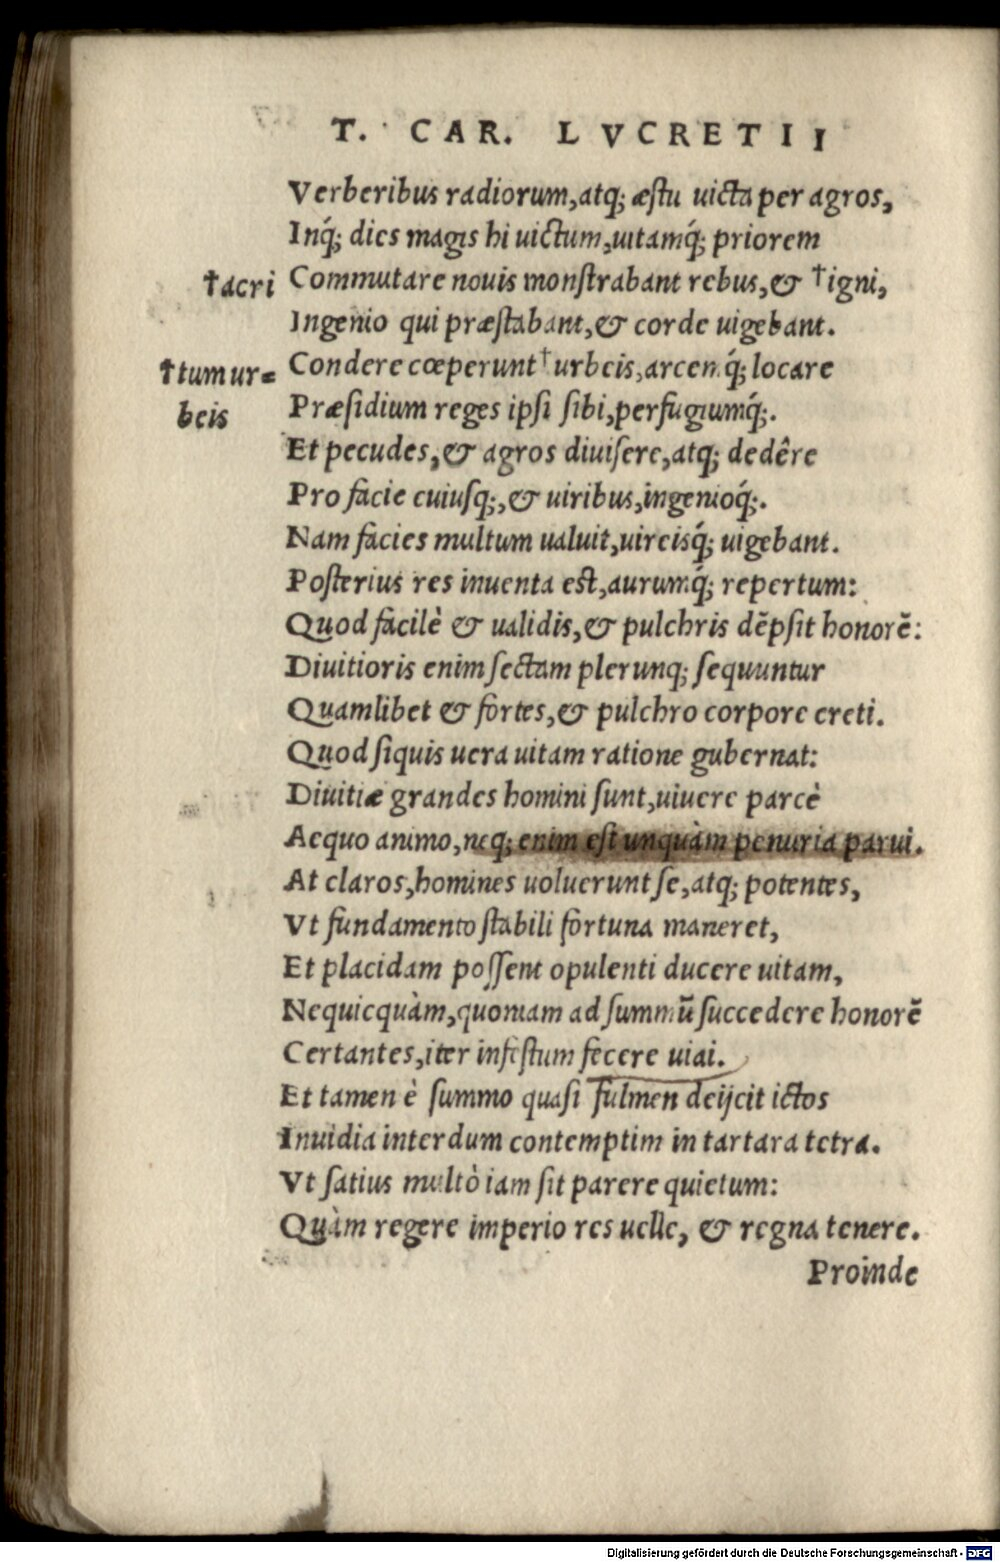 T. CAR. LVCRETII
Verberibus radiorum, atq; æstu uicta per agros,
Inq́; dies magis hi uictum, uitamq́; priorem
†acri
Commutare nouis monstrabant rebus, & †igni,
Ingenio qui præstabant, & corde uigebant.
†tum ur=
beis
Condere cœperunt †urbeis, arcemq́; locare
Præsidium reges ipsi sibi, perfugiumq́;.
Et pecudes, & agros diuisere, atq; dedêre
Pro facie cuiusq;, & uiribus, ingenioq́;.
Nam facies multum ualuit, uireisq́; uigebant.
Posterius res inuenta est, aurumq́; repertum:
Quod facilè & ualidis, & pulchris dẽpsit honorẽ:
Diuitioris enim sectam plerunq; sequuntur
Quamlibet & fortes, & pulchro corpore creti.
Quod siquis uera uitam ratione gubernat:
Diuitiæ grandes homini sunt, uiuere parcè
Aequo animo, neq; enim est unquàm penuria parui.
At claros, homines uoluerunt se, atq; potentes,
Vt fundamento stabili fortuna maneret,
Et placidam possent opulenti ducere uitam,
Nequicquàm, quoniam ad summũ succedere honorẽ
Certantes, iter infestum fecere uiai.
Et tamen è summo quasi fulmen deijcit ictos
Inuidia interdum contemptim in tartara tetra.
Vt satius multò iam sit parere quietum:
Quàm regere imperio res uelle, & regna tenere.
Proinde
Digitalisierung gefördert durch die Deutsche Forschungsgemeinschaft - DFG